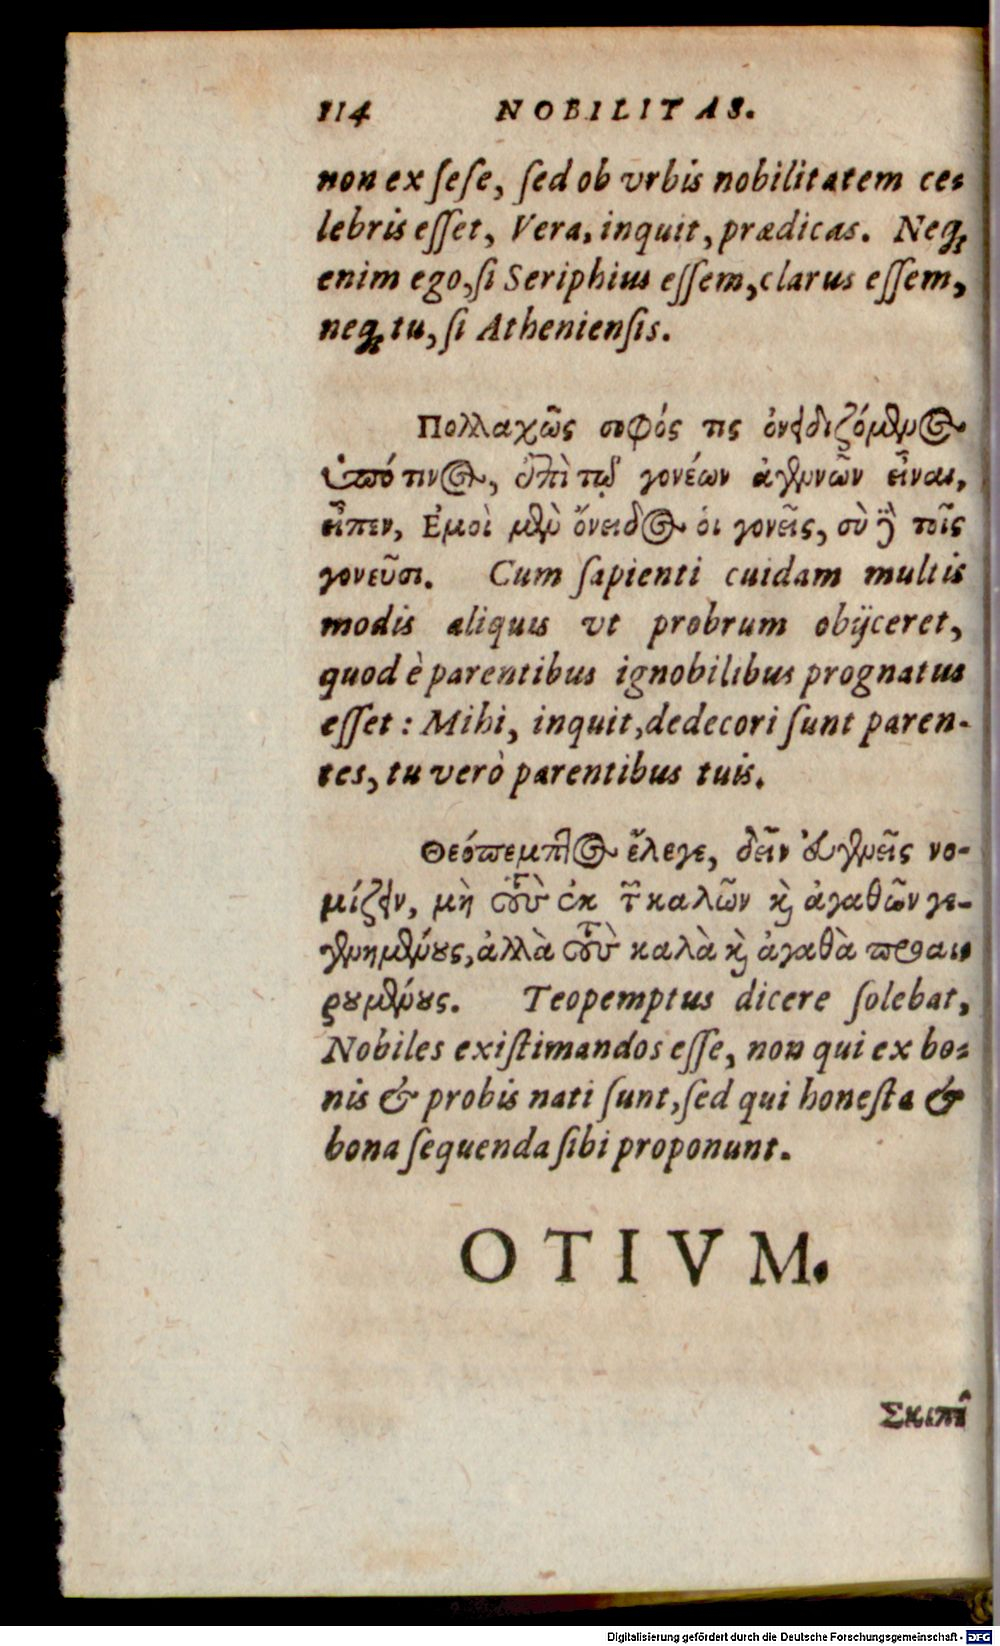 114 NOBILITAS.
non ex ſeſe, ſed ob vrbis nobilitatem ce-
lebris eſſet, Vera, inquit, prædicas. Neq;
enim ego, ſi Seriphius eſſem, clarus eſſem,
neq; tu, ſi Athenienſis.
Πολλαχῶς σοφός τις ὀνειδιζόμενος
ὑπό τινος, ἐπὶ τῷ γονέων ἀγενῶν εἶναι,
εἶπεν, Εμοὶ μὲν ὄνειδος οἱ γονεῖς, σὺ δὲ τοῖς
γονεῦσι. Cum ſapienti cuidam multis
modis aliquis vt probrum obijceret,
quod è parentibus ignobilibus prognatus
eſſet: Mihi, inquit, dedecori ſunt paren-
tes, tu verò parentibus tuis.
Θεόπεμπτος ἔλεγε, δεῖν εὐγενεῖς νο-
μίζειν, μὴ τοὺς ἐκ τῶν καλῶν καὶ ἀγαθῶν γε-
γενημένους, ἀλλὰ τοὺς καλὰ καὶ ἀγαθὰ προαι-
ρουμένους. Teopemptus dicere ſolebat,
Nobiles exiſtimandos eſſe, non qui ex bo-
nis & probis nati ſunt, ſed qui honeſta &
bona ſequenda ſibi proponunt.
OTIVM.
Σκιπί
Digitalisierung gefördert durch die Deutsche Forschungsgemeinschaft - DFG